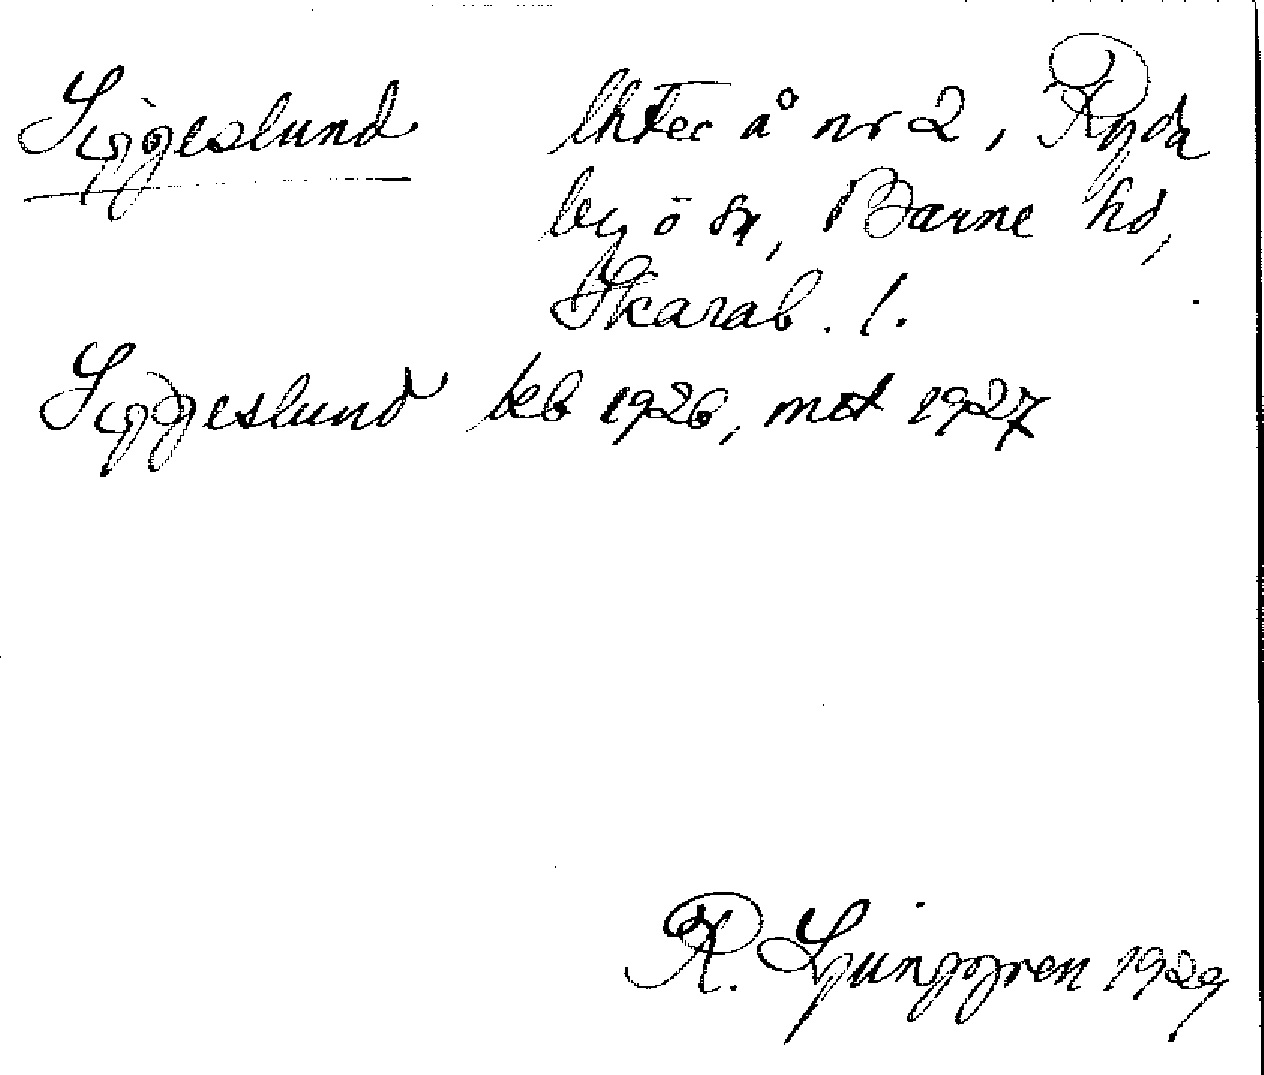 Siggeslund lhten å nr 2, Ryda
by ö sn, Barne hd,
Skarab. l.
Siggeslund beb 1926, mat 1927
R. Ljunggren 1929